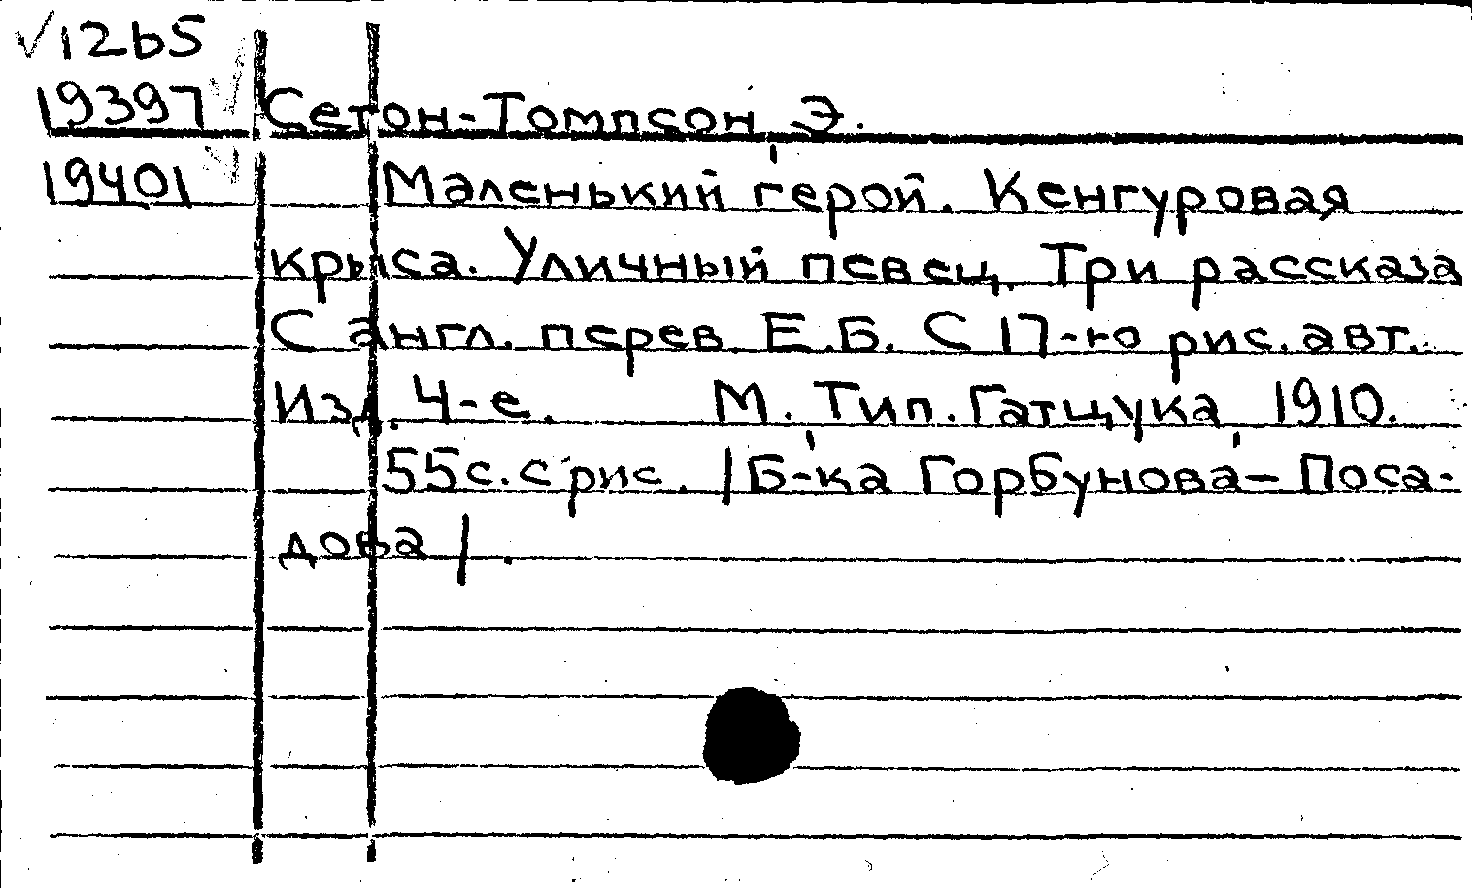 12b5
19397 Сетон-Томпсон Э.
19401 Маленький герой. Кенгуровая
крыса. Уличный певец. Три рассказа
С англ. перев. Е.Б. С 17-ю рис. авт.
Изд. 4-е. М. Тип. Гатцука, 1910.
55с. с рис. /Б-ка Горбунова-Поса-
дова/.